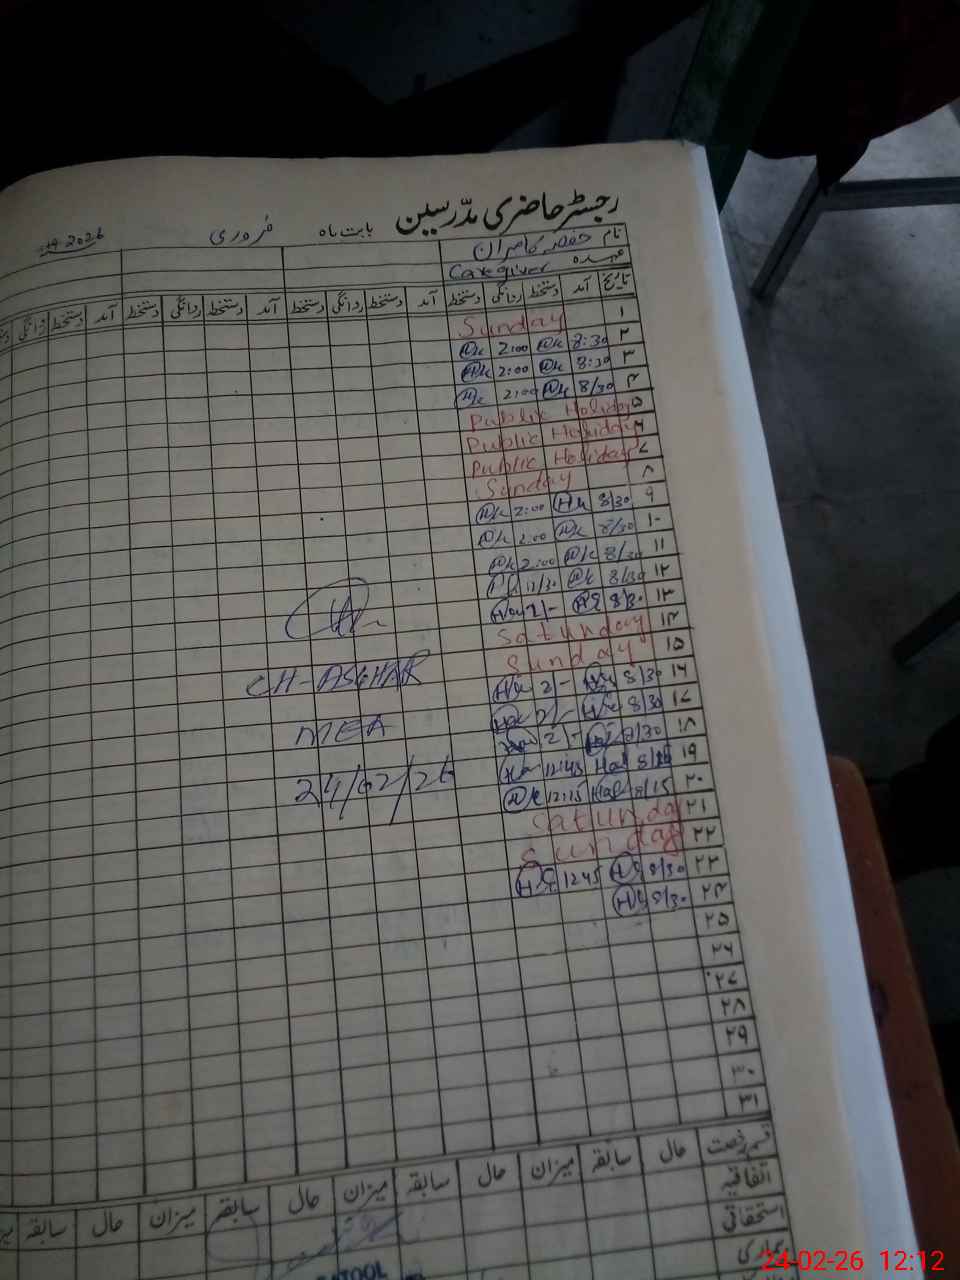 رجسٹر حاضری مدّرسین بابت ماہ فروری 2026
نام حفصہ کامران
عہدہ Caregiver
تاریخ آمد دستخط روانگی دستخط آمد دستخط روانگی دستخط آمد دستخط روانگی دستخط آمد دستخط روانگی
۱ Sunday
۲ 8:30 2:00
۳ 8:30 2:00
۴ 8/30 2:00
۵ Public Holiday
۶ Public Holiday
۷ Public Holiday
۸ Sunday
۹ 8/30 2:00
۱۰ 8/30 2:00
۱۱ 8/30 2:00
۱۲ 8/30
۱۳ 8/30 2/-
۱۴ Saturday
۱۵ Sunday
۱۶ 8/30 2/-
۱۷ 8/30 2/-
۱۸ 8/30 2/-
۱۹ 12:45
۲۰ 8/15 12:15
۲۱ Saturday
۲۲ Sunday
۲۳ 8/30 1245
۲۴ 8/30
۲۵
۲۶
۲۷
۲۸
۲۹
۳۰
۳۱
CH-ASGHAR
MEA
24/02/26
قسم رخصت حال سابقہ میزان حال سابقہ میزان حال سابقہ میزان حال سابقہ
اتفاقیہ
استحقاقی
بیماری
24-02-26 12:12